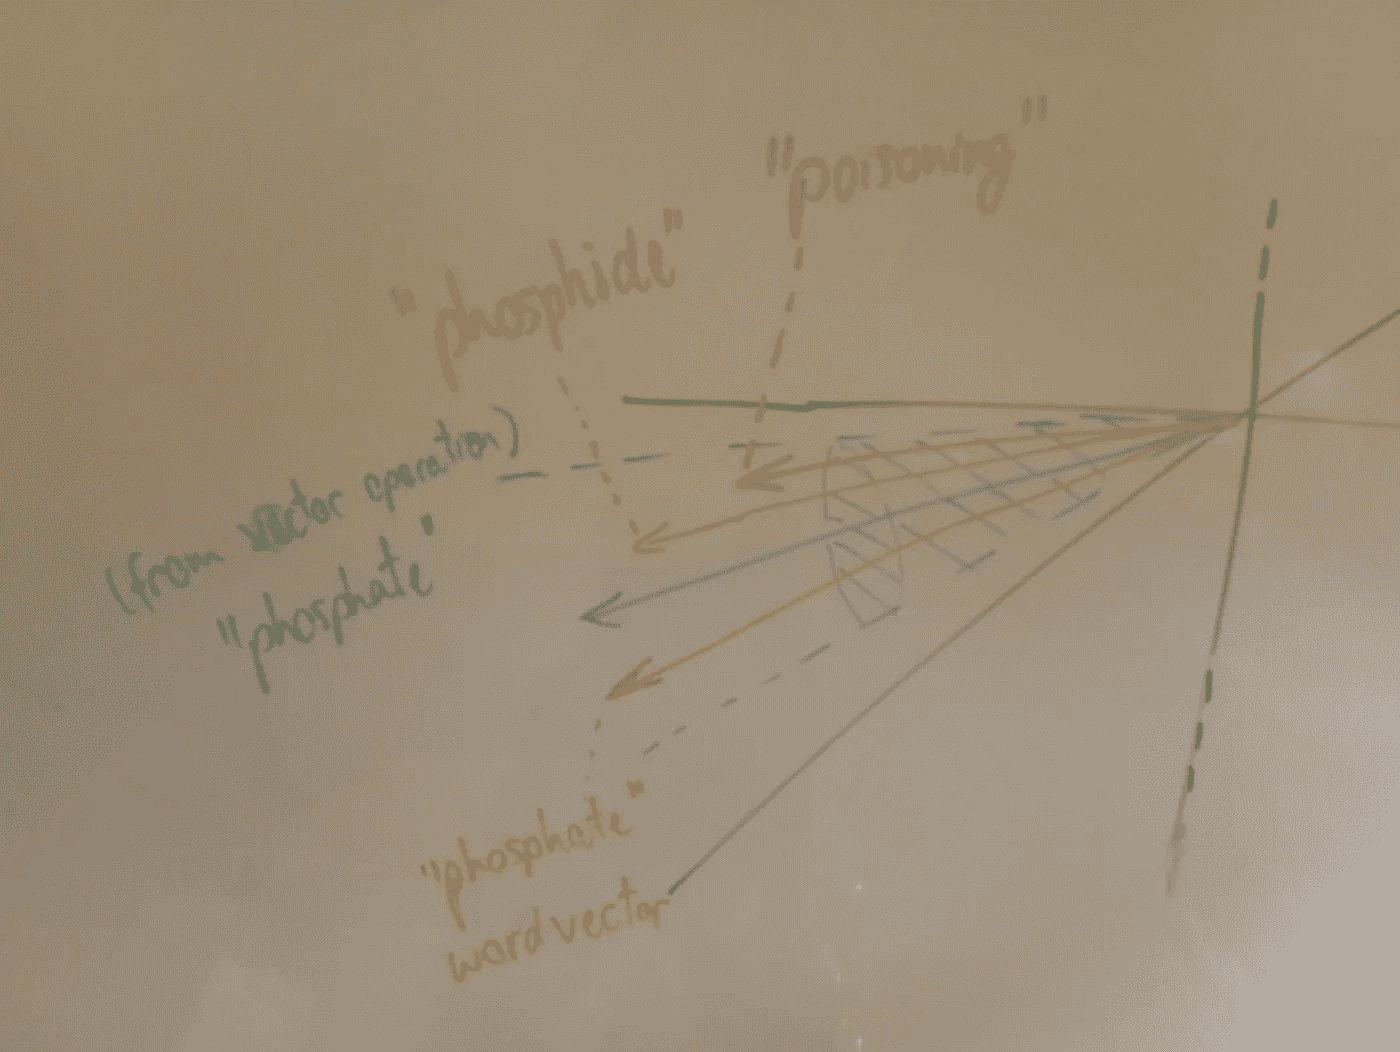 "poisoning"
"phosphide"
(from vector operation)
"phosphate"
"phosphate"
word vector